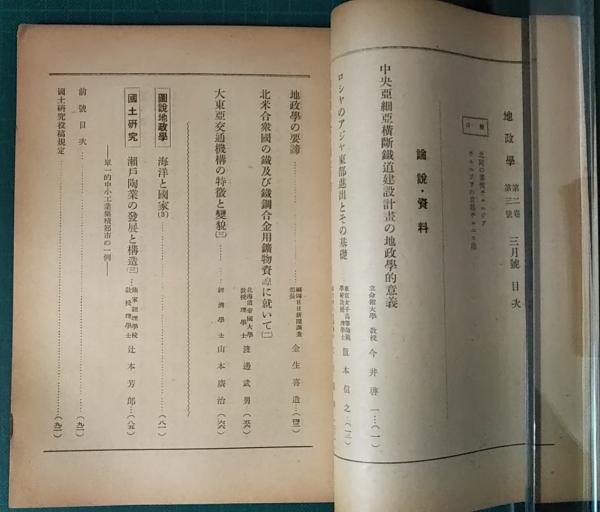 地政學 第二卷 第三號 三月號 目次
論說・資料
中央亞細亞橫斷鐵道建設計畫の地政學的意義
立命館大學敎授 今井啓一…(一)
ロシヤのアジヤ東部進出とその基礎
信之…(一三)
地政學の要諦
金生喜造…
北米合衆國の鐵及び鐵鋼合金用鑛物資源に就いて(二)
北海道帝國大學敎授 理學士 渡邊武男
大東亞交通機構の特徵と變貌(三)
經濟學士 山本廣治…(六六)
圖說地政學 海洋と國家(3)…(八一)
國土硏究 瀨戶陶業の發展と構造(三)…
敎授 理學士 辻本芳郎…(八五)
——單一的中小工業集積都市の一例——
前號目次…
國土硏究投稿規定…